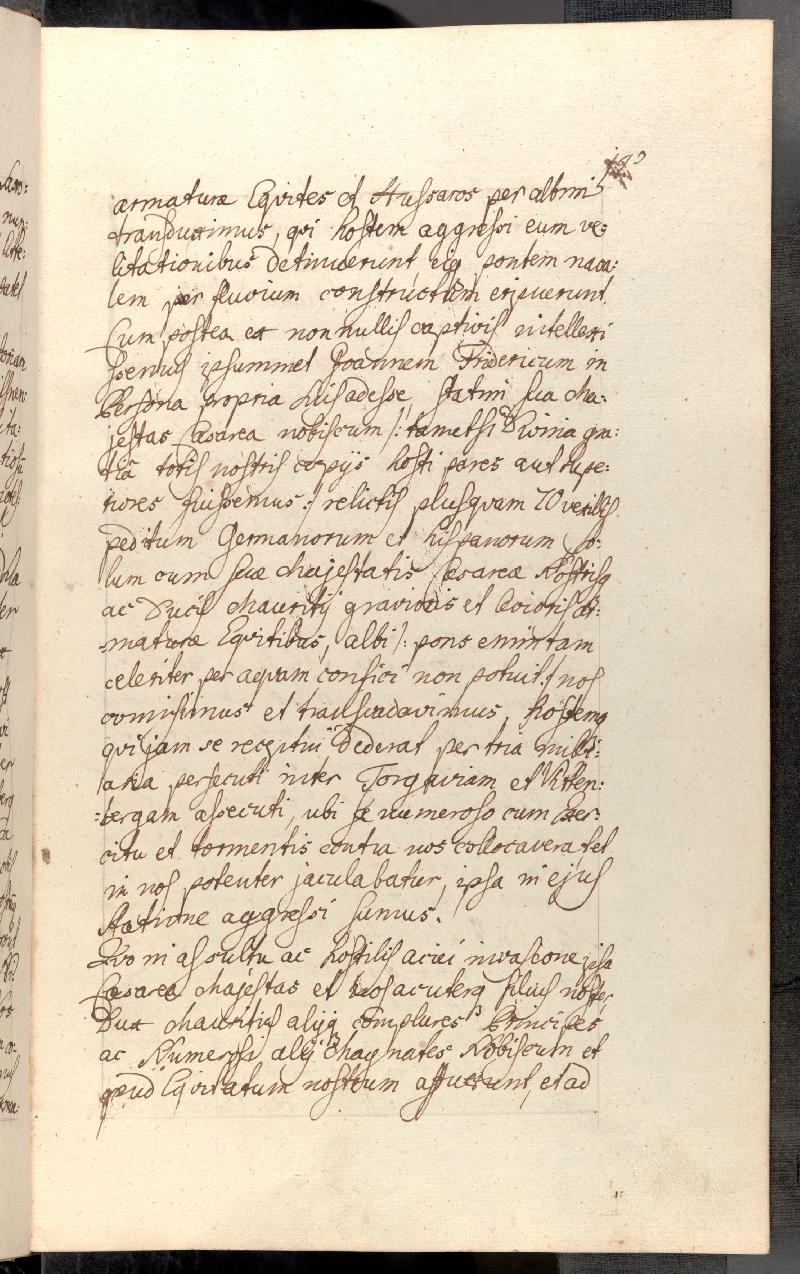 armaturæ Eqvites et Hussaros per albim
transduximus, qvi hostem aggressi eum ve=
litationibus detinuerunt, eiq pontem nava:
lem per fluvium constructum eripuerunt.
Cum postea ex nonnullis captivis intellexi
ssemus ipsummet Joannem Fridericum in
Persona propria his adesse, statim sua Ma:
jestas Cæsarea nobiscum /: tametsi Divina gra:
tia totis nostris copijs hosti pares aut supe:
riores fuissemus :/ relictis plusquam 70 vexillis
peditum Germanorum et hispanorum So:
lum cum suæ Majestatis Cæsareæ Nostrisq
ac Ducis Mauritij gravioris et levioris ar:
maturæ Eqvitibus, albi /: pons enim tam
celeriter per aqvam confici non potuit :/ nos
comisimus et transvadavimus, hostemq
qvi jam se receptui dederat per tria milli:
aria persecuti inter Torgaviam et Witten:
:bergam assecuti, ubi se numeroso cum Exer:
citu et tormentis contra nos collocaverat, et
in nos potenter jaculabatur, ipsa in ejus
statione aggressi sumus.
Qvo in assultu ac hostilis aciei invasione ipsa
Cæsarea Majestas et nos ac uterq filius noster,
Dux Mauritius alijq complures Principes
ac Numerosi alij Magnates Nobiscum et
apud Eqvitatum nostrum affuerunt, et ad